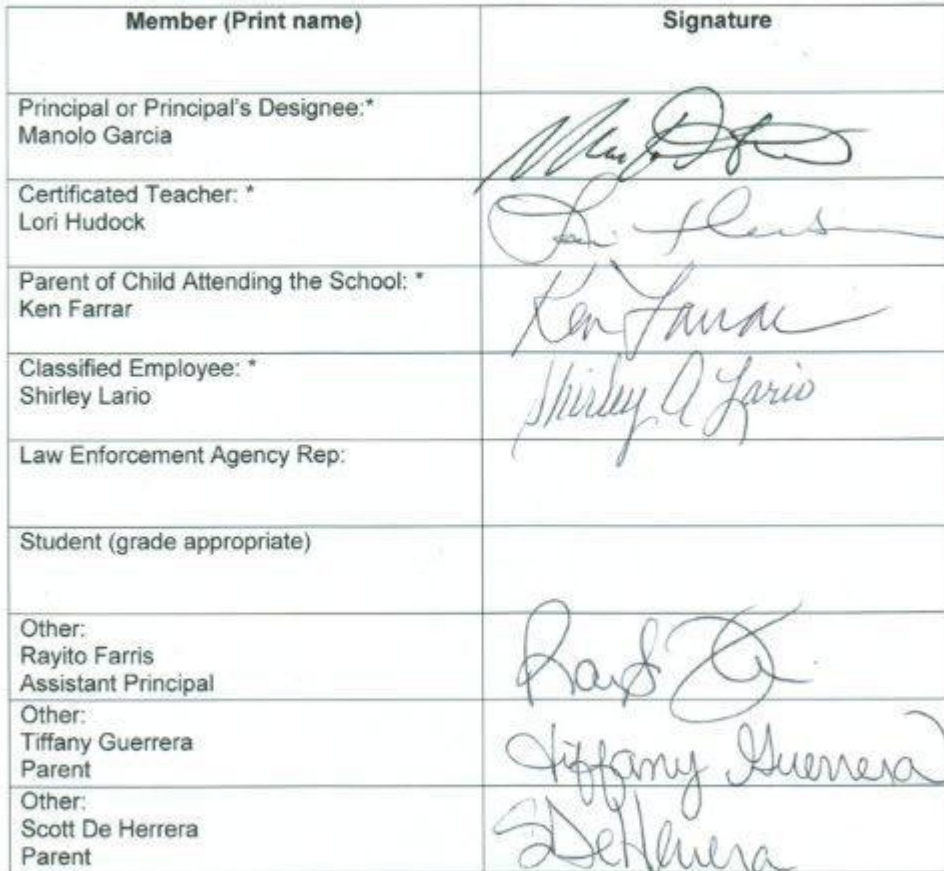 Member (Print name) Signature
Principal or Principal's Designee:*
Manolo Garcia
Certificated Teacher: *
Lori Hudock
Parent of Child Attending the School: *
Ken Farrar
Ken Farrar
Classified Employee: *
Shirley Lario
Shirley A Lario
Law Enforcement Agency Rep:
Student (grade appropriate)
Other:
Rayito Farris
Assistant Principal
Other:
Tiffany Guerrera
Parent
Tiffany Guerrera
Other:
Scott De Herrera
Parent
SDeHerrera